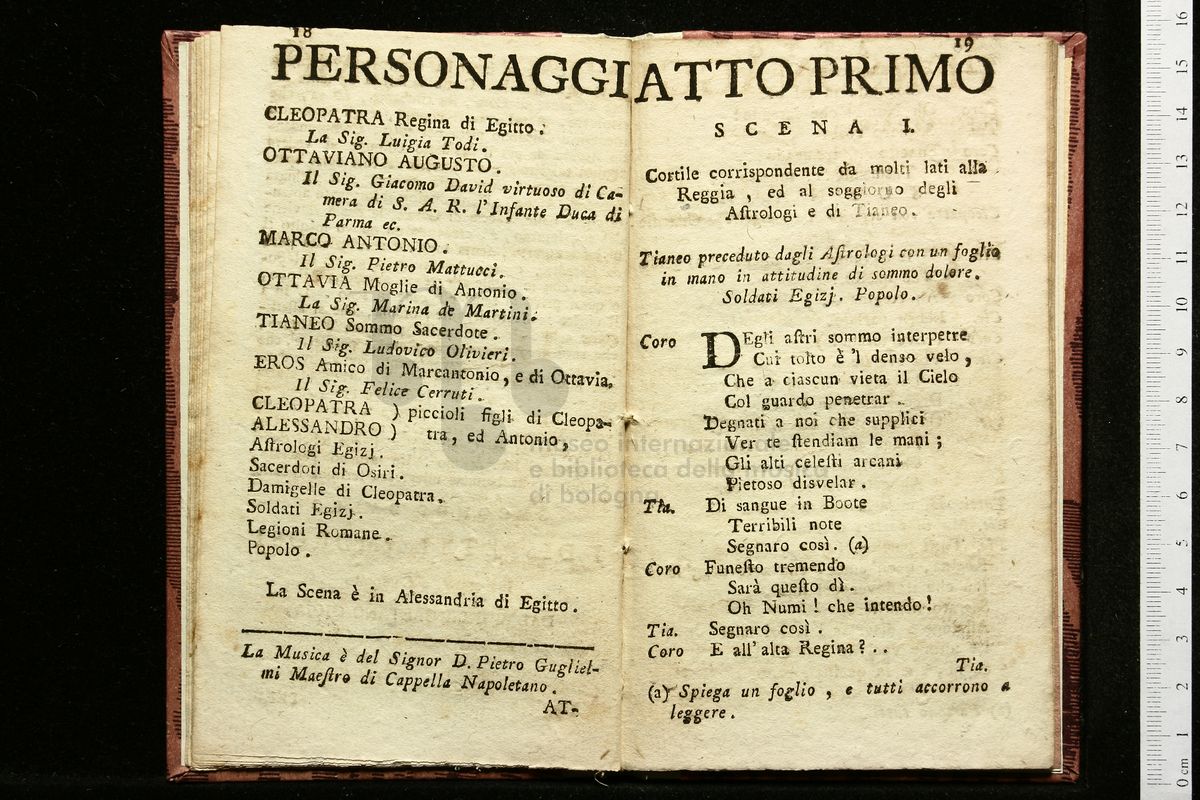 18
PERSONAGGI
CLEOPATRA Regina di Egitto.
La Sig. Luigia Todi.
OTTAVIANO AUGUSTO.
Il Sig. Giacomo David virtuoso di Ca-
mera di S. A. R. l'Infante Duca di
Parma ec.
MARCO ANTONIO.
Il Sig. Pietro Mattucci.
OTTAVIA Moglie di Antonio.
La Sig. Marina de Martini.
TIANEO Sommo Sacerdote.
Il Sig. Ludovico Olivieri.
EROS Amico di Marcantonio, e di Ottavia.
Il Sig. Felice Cerruti.
CLEOPATRA ) piccioli figli di Cleopa-
ALESSANDRO ) tra, ed Antonio,
Aſtrologi Egizj.
Sacerdoti di Osiri.
Damigelle di Cleopatra.
Soldati Egizj.
Legioni Romane.
Popolo.
La Scena è in Alessandria di Egitto.
La Musica è del Signor D. Pietro Gugliel-
mi Maeſtro di Cappella Napoletano.
AT-
19
ATTO PRIMO
SCENA I.
Cortile corrispondente da molti lati alla
Reggia, ed al soggiorno degli
Aſtrologi e di Tianeo.
Tianeo preceduto dagli Aſtrologi con un foglio
in mano in attitudine di sommo dolore.
Soldati Egizj. Popolo.
Coro DEgli aſtri sommo interpetre
Cui tolto è 'l denso velo,
Che a ciascun vieta il Cielo
Col guardo penetrar.
Degnati a noi che supplici
Ver te ſtendiam le mani;
Gli alti celeſti arcani
Pietoso disvelar.
Tia. Di sangue in Boote
Terribili note
Segnaro così. (a)
Coro Funeſto tremendo
Sarà queſto dì.
Oh Numi! che intendo!
Tia. Segnaro così.
Coro E all'alta Regina?..
Tia.
(a) Spiega un foglio, e tutti accorrono a
leggere.
museo internazionale
e biblioteca della musica
di bologna
0 cm 1 2 3 4 5 6 7 8 9 10 11 12 13 14 15 16